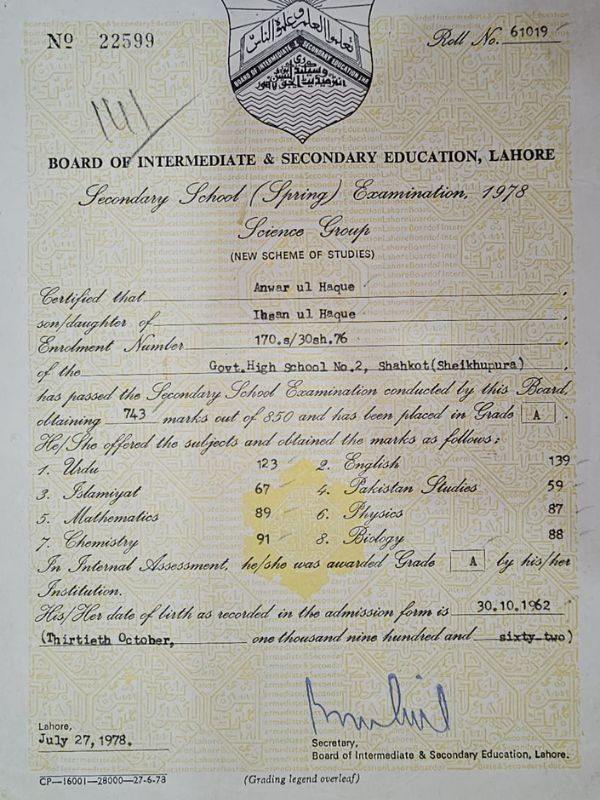 Nº 22599
Roll No. 61019
تعلموا العلم و علموه الناس
BOARD OF INTERMEDIATE & SECONDARY EDUCATION LHR
141
BOARD OF INTERMEDIATE & SECONDARY EDUCATION, LAHORE
Secondary School (Spring) Examination, 1978
Science Group
(NEW SCHEME OF STUDIES)
Certified that Anwar ul Haque
son/daughter of Ihsan ul Haque
Enrolment Number 170.s/30sh.76
of the Govt.High School No.2, Shahkot(Sheikhupura)
has passed the Secondary School Examination conducted by this Board,
obtaining 743 marks out of 850 and has been placed in Grade A .
He/She offered the subjects and obtained the marks as follows:
1. Urdu 123 2. English 139
3. Islamiyat 67 4. Pakistan Studies 59
5. Mathematics 89 6. Physics 87
7. Chemistry 91 8. Biology 88
In Internal Assessment, he/she was awarded Grade A by his/her
Institution.
His/Her date of birth as recorded in the admission form is 30.10.1962
(Thirtieth October, one thousand nine hundred and sixty-two)
Lahore,
July 27,1978.
Secretary,
Board of Intermediate & Secondary Education, Lahore.
CP—16001—28000—27-6-78
(Grading legend overleaf)